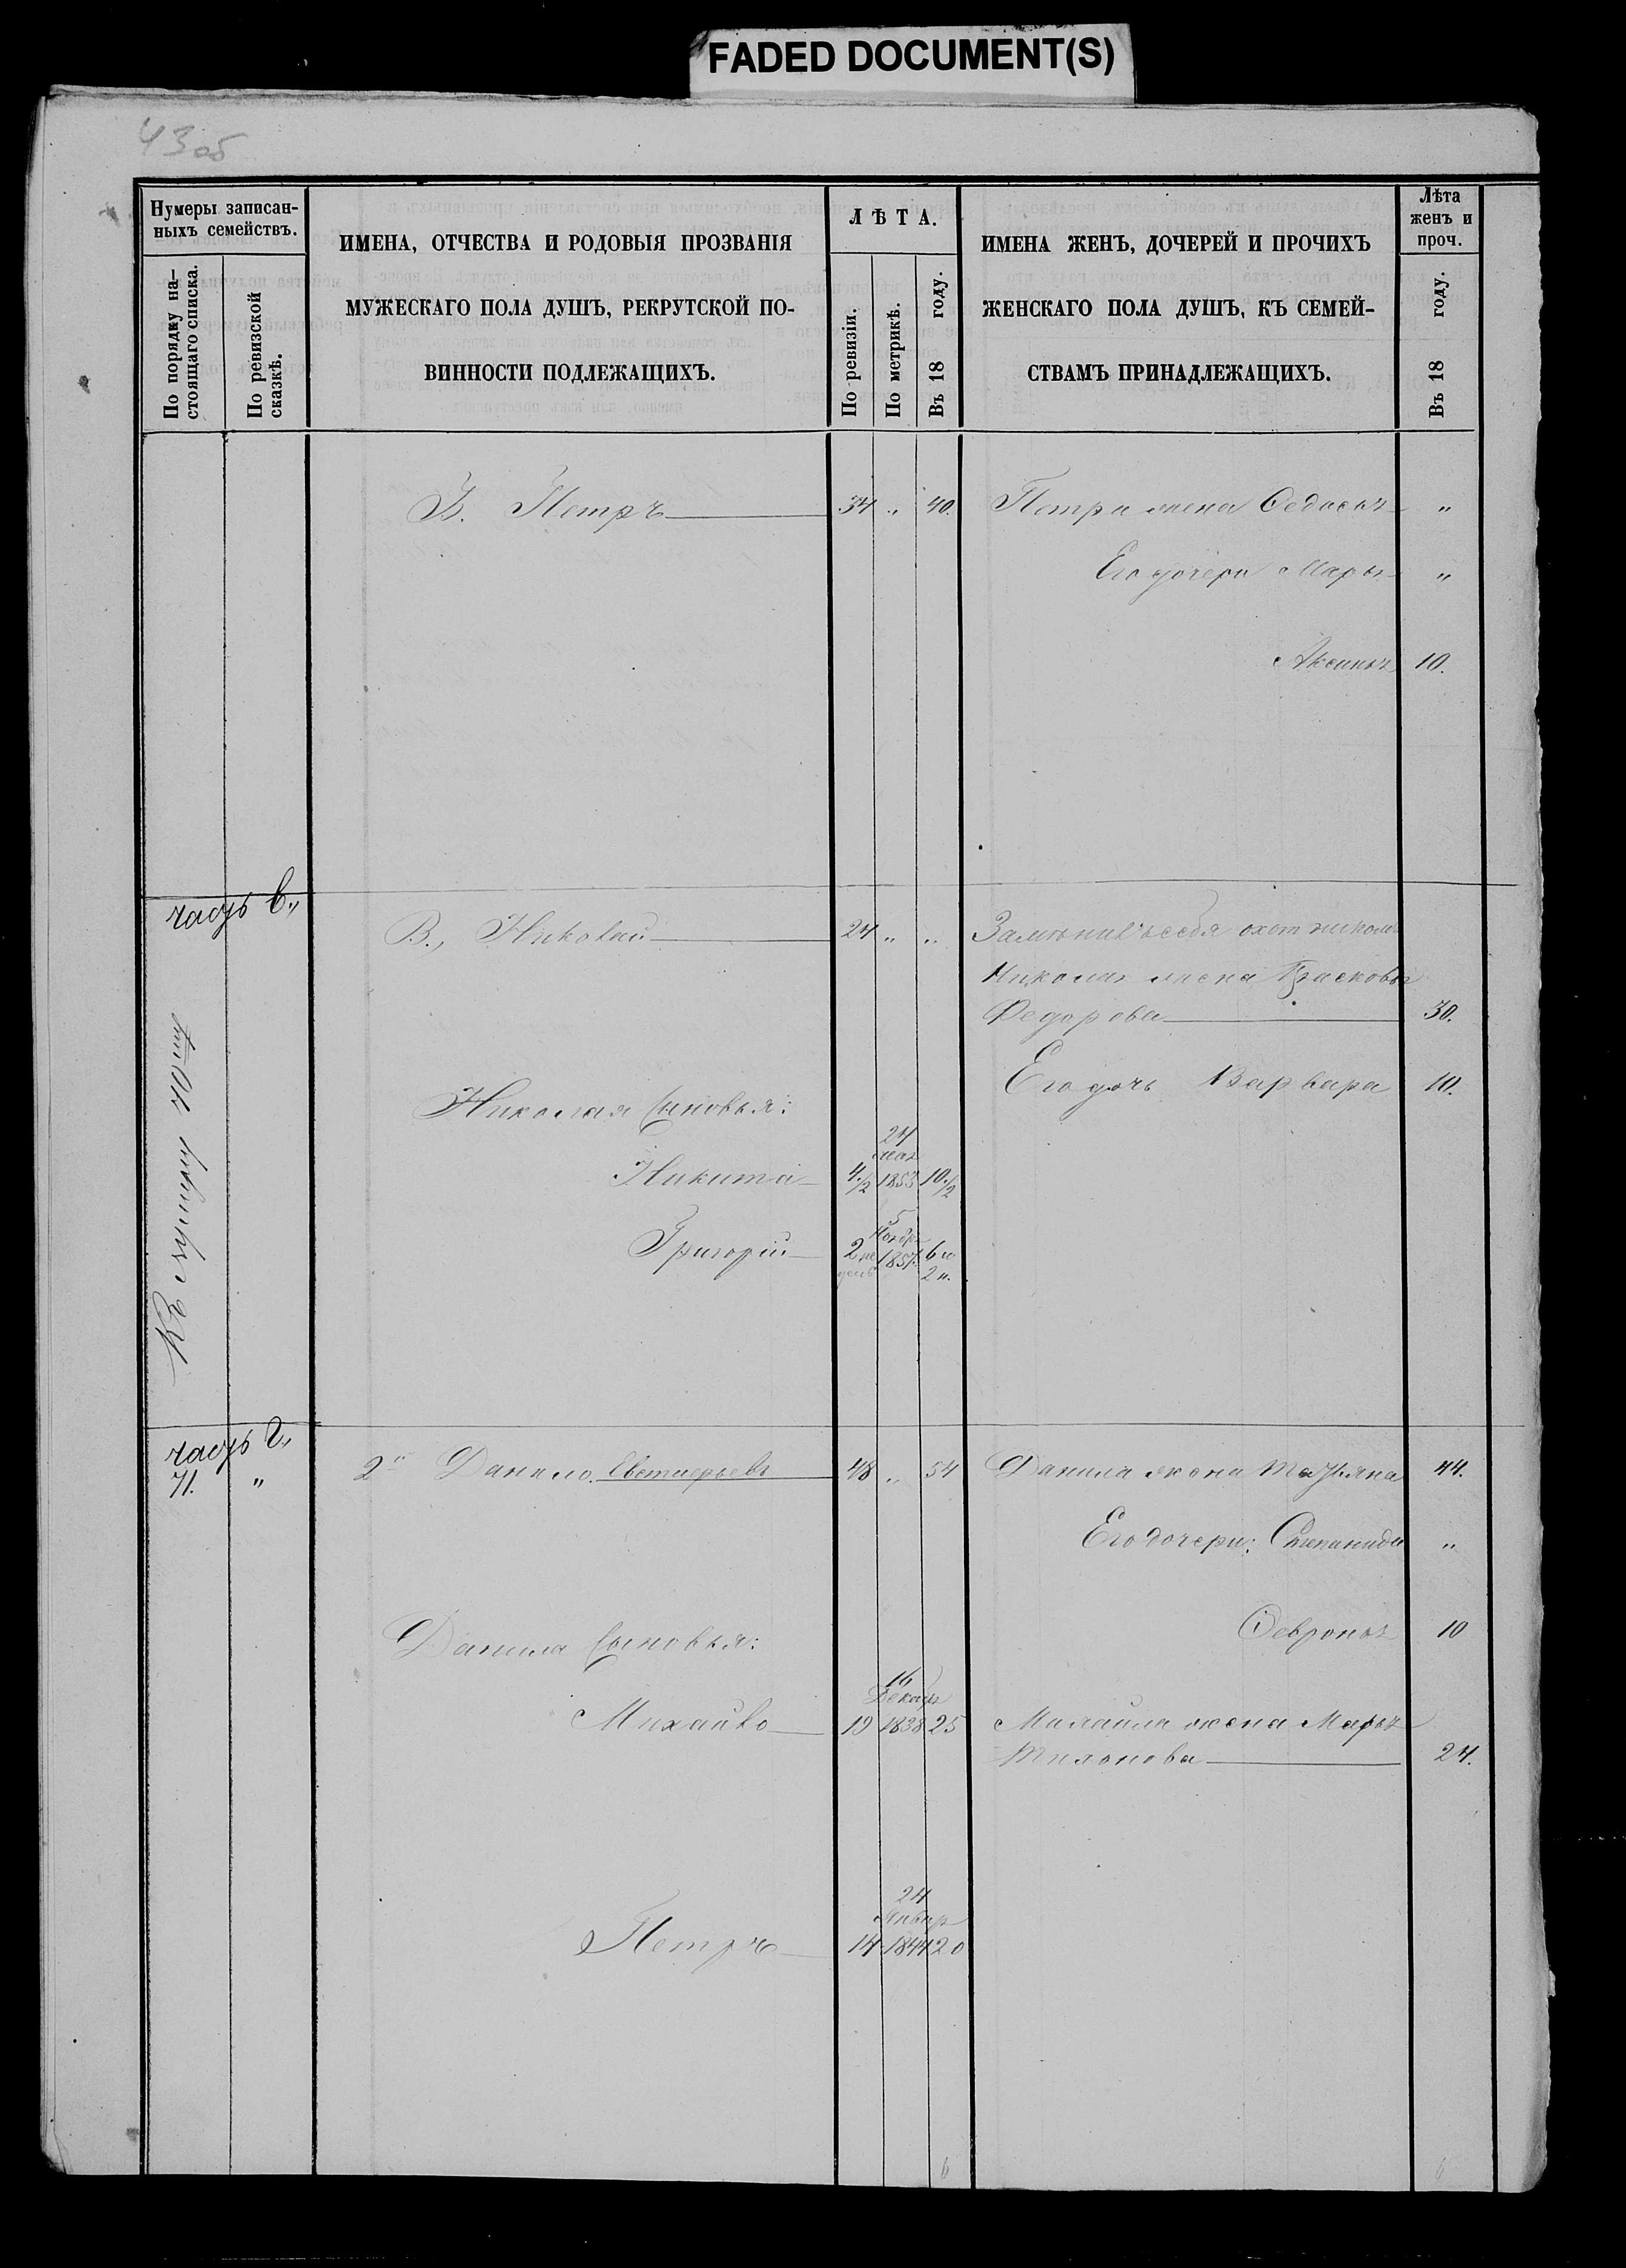 FADED DOCUMENT(S)
43 об
Нумеры записан-
ныхъ семействъ.
По порядку на-
стоящаго списка.
По ревизской
сказкѣ.
ИМЕНА, ОТЧЕСТВА И РОДОВЫЯ ПРОЗВАНІЯ
МУЖЕСКАГО ПОЛА ДУШЪ, РЕКРУТСКОЙ ПО-
ВИННОСТИ ПОДЛЕЖАЩИХЪ.
ЛѢТА.
По ревизіи.
По метрикѣ.
Въ 18 году.
ИМЕНА ЖЕНЪ, ДОЧЕРЕЙ И ПРОЧИХЪ
ЖЕНСКАГО ПОЛА ДУШЪ, КЪ СЕМЕЙ-
СТВАМЪ ПРИНАДЛЕЖАЩИХЪ.
Лѣта
женъ и
проч.
Въ 18 году.
Петръ 34 „ 40. Петра жена Федосья „
Его дочери Марья „
Аксинья 10.
часть в.,
В., Николай 24 „ „ Замѣнивъ себя охотникомъ
Николая жена Прасковья
Федорова 30.
Его дочь Варвара 10.
Николая сыновья:
24
Никита 4 1/2 1853 10 1/2
5
Ноябр
Григорий 2 не 1857 6 и
дель 2 н.
часть г.,
71. „ 2й Данило Евстигѣевъ 48 „ 54 Данила жена Татьяна 44.
Его дочери: Степанида „
Февронья 10
Данила сыновья:
16
Декабр
Михайло 19 1838 25 Михаила жена Марья
24.
24
Январ
Петръ 14 1844 20